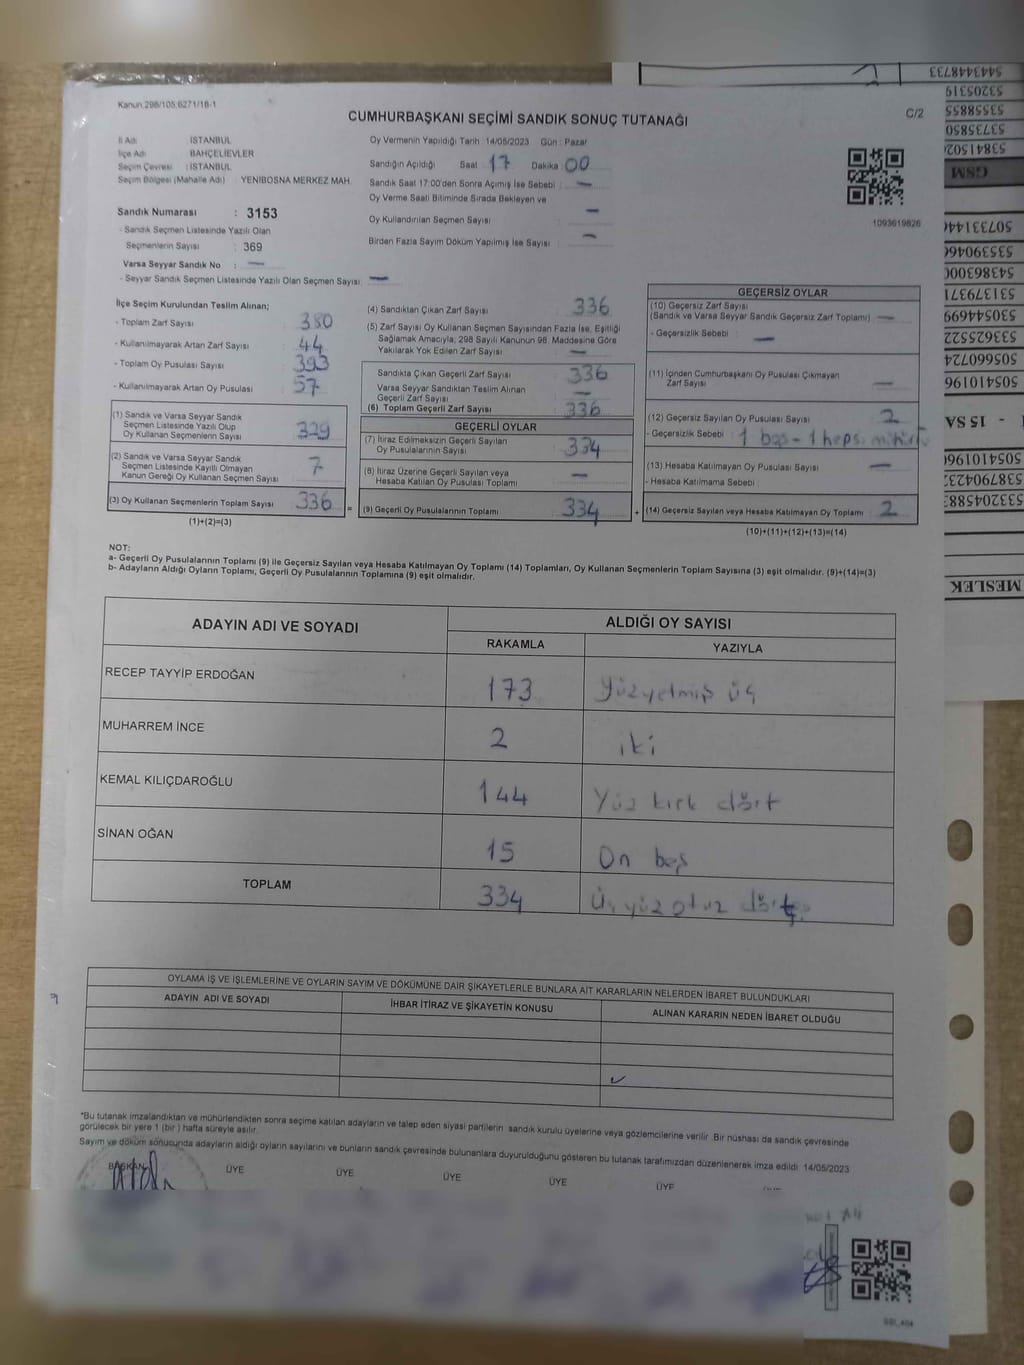 Kanun 298/105,6271/18-1
CUMHURBAŞKANI SEÇİMİ SANDIK SONUÇ TUTANAĞI
C/2
İl Adı: İSTANBUL
İlçe Adı BAHÇELİEVLER
Seçim Çevresi : İSTANBUL
Seçim Bölgesi (Mahalle Adı) YENİBOSNA MERKEZ MAH.
Oy Vermenin Yapıldığı Tarih : 14/05/2023 Gün : Pazar
Sandığın Açıldığı Saat 17 Dakika 00
Sandık Saat 17:00'den Sonra Açımış İse Sebebi : —
Oy Verme Saati Bitiminde Sırada Bekleyen ve
Oy Kullandırılan Seçmen Sayısı —
Birden Fazla Sayım Döküm Yapılmış İse Sayısı —
1093619826
Sandık Numarası : 3153
- Sandık Seçmen Listesinde Yazılı Olan
Seçmenlerin Sayısı : 369
Varsa Seyyar Sandık No : —
- Seyyar Sandık Seçmen Listesinde Yazılı Olan Seçmen Sayısı: —
İlçe Seçim Kurulundan Teslim Alınan;
- Toplam Zarf Sayısı 380
- Kullanılmayarak Artan Zarf Sayısı 44
- Toplam Oy Pusulası Sayısı 393
- Kullanılmayarak Artan Oy Pusulası 57
(1) Sandık ve Varsa Seyyar Sandık
Seçmen Listesinde Yazılı Olup
Oy Kullanan Seçmenlerin Sayısı 329
(2) Sandık ve Varsa Seyyar Sandık
Seçmen Listesinde Kayıtlı Olmayan
Kanun Gereği Oy Kullanan Seçmen Sayısı 7
(3) Oy Kullanan Seçmenlerin Toplam Sayısı 336
(1)+(2)=(3)
(4) Sandıktan Çıkan Zarf Sayısı 336
(5) Zarf Sayısı Oy Kullanan Seçmen Sayısından Fazla İse, Eşitliği
Sağlamak Amacıyla, 298 Sayılı Kanunun 98. Maddesine Göre
Yakılarak Yok Edilen Zarf Sayısı —
Sandıkta Çıkan Geçerli Zarf Sayısı 336
Varsa Seyyar Sandıktan Teslim Alınan
Geçerli Zarf Sayısı —
(6) Toplam Geçerli Zarf Sayısı 336
GEÇERLİ OYLAR
(7) İtiraz Edilmeksizin Geçerli Sayılan
Oy Pusulalarının Sayısı 334
(8) İtiraz Üzerine Geçerli Sayılan veya
Hesaba Katılan Oy Pusulası Toplamı —
= (9) Geçerli Oy Pusulalarının Toplamı 334
GEÇERSİZ OYLAR
(10) Geçersiz Zarf Sayısı
(Sandık ve Varsa Seyyar Sandık Geçersiz Zarf Toplamı) —
- Geçersizlik Sebebi : —
(11) İçinden Cumhurbaşkanı Oy Pusulası Çıkmayan
Zarf Sayısı —
(12) Geçersiz Sayılan Oy Pusulası Sayısı 2
- Geçersizlik Sebebi : 1 boş - 1 heps.
(13) Hesaba Katılmayan Oy Pusulası Sayısı —
- Hesaba Katılmama Sebebi :
+ (14) Geçersiz Sayılan veya Hesaba Katılmayan Oy Toplamı 2
(10)+(11)+(12)+(13)=(14)
NOT:
a- Geçerli Oy Pusulalarının Toplamı (9) ile Geçersiz Sayılan veya Hesaba Katılmayan Oy Toplamı (14) Toplamları, Oy Kullanan Seçmenlerin Toplam Sayısına (3) eşit olmalıdır. (9)+(14)=(3)
b- Adayların Aldığı Oyların Toplamı, Geçerli Oy Pusulalarının Toplamına (9) eşit olmalıdır.
ADAYIN ADI VE SOYADI
ALDIĞI OY SAYISI
RAKAMLA YAZIYLA
RECEP TAYYİP ERDOĞAN 173 Yüzyetmiş üç
MUHARREM İNCE 2 iki
KEMAL KILIÇDAROĞLU 144 Yüz kırk dört
SİNAN OĞAN 15 On beş
TOPLAM 334 Üçyüz otuz dört
OYLAMA İŞ VE İŞLEMLERİNE VE OYLARIN SAYIM VE DÖKÜMÜNE DAİR ŞİKAYETLERLE BUNLARA AİT KARARLARIN NELERDEN İBARET BULUNDUKLARI
ADAYIN ADI VE SOYADI İHBAR İTİRAZ VE ŞİKAYETİN KONUSU ALINAN KARARIN NEDEN İBARET OLDUĞU
*Bu tutanak imzalandıktan ve mühürlendikten sonra seçime katılan adayların ve talep eden siyasi partilerin sandık kurulu üyelerine veya gözlemcilerine verilir .Bir nüshası da sandık çevresinde
görülecek bir yere 1 (bir ) hafta süreyle asılır.
Sayım ve döküm sonucunda adayların aldığı oyların sayılarını ve bunların sandık çevresinde bulunanlara duyurulduğunu gösteren bu tutanak tarafımızdan düzenlenerek imza edildi. 14/05/2023
BAŞKAN ÜYE ÜYE ÜYE ÜYE ÜYE
5443448733
GSM
15 SA
MESLEK